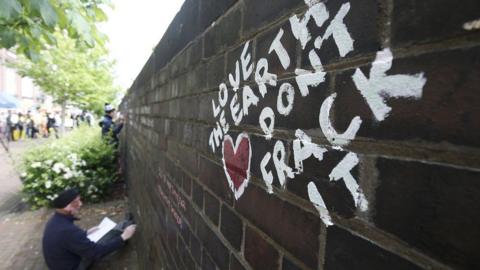 LOVE
THE EARTH
DON'T
FRACK
IT